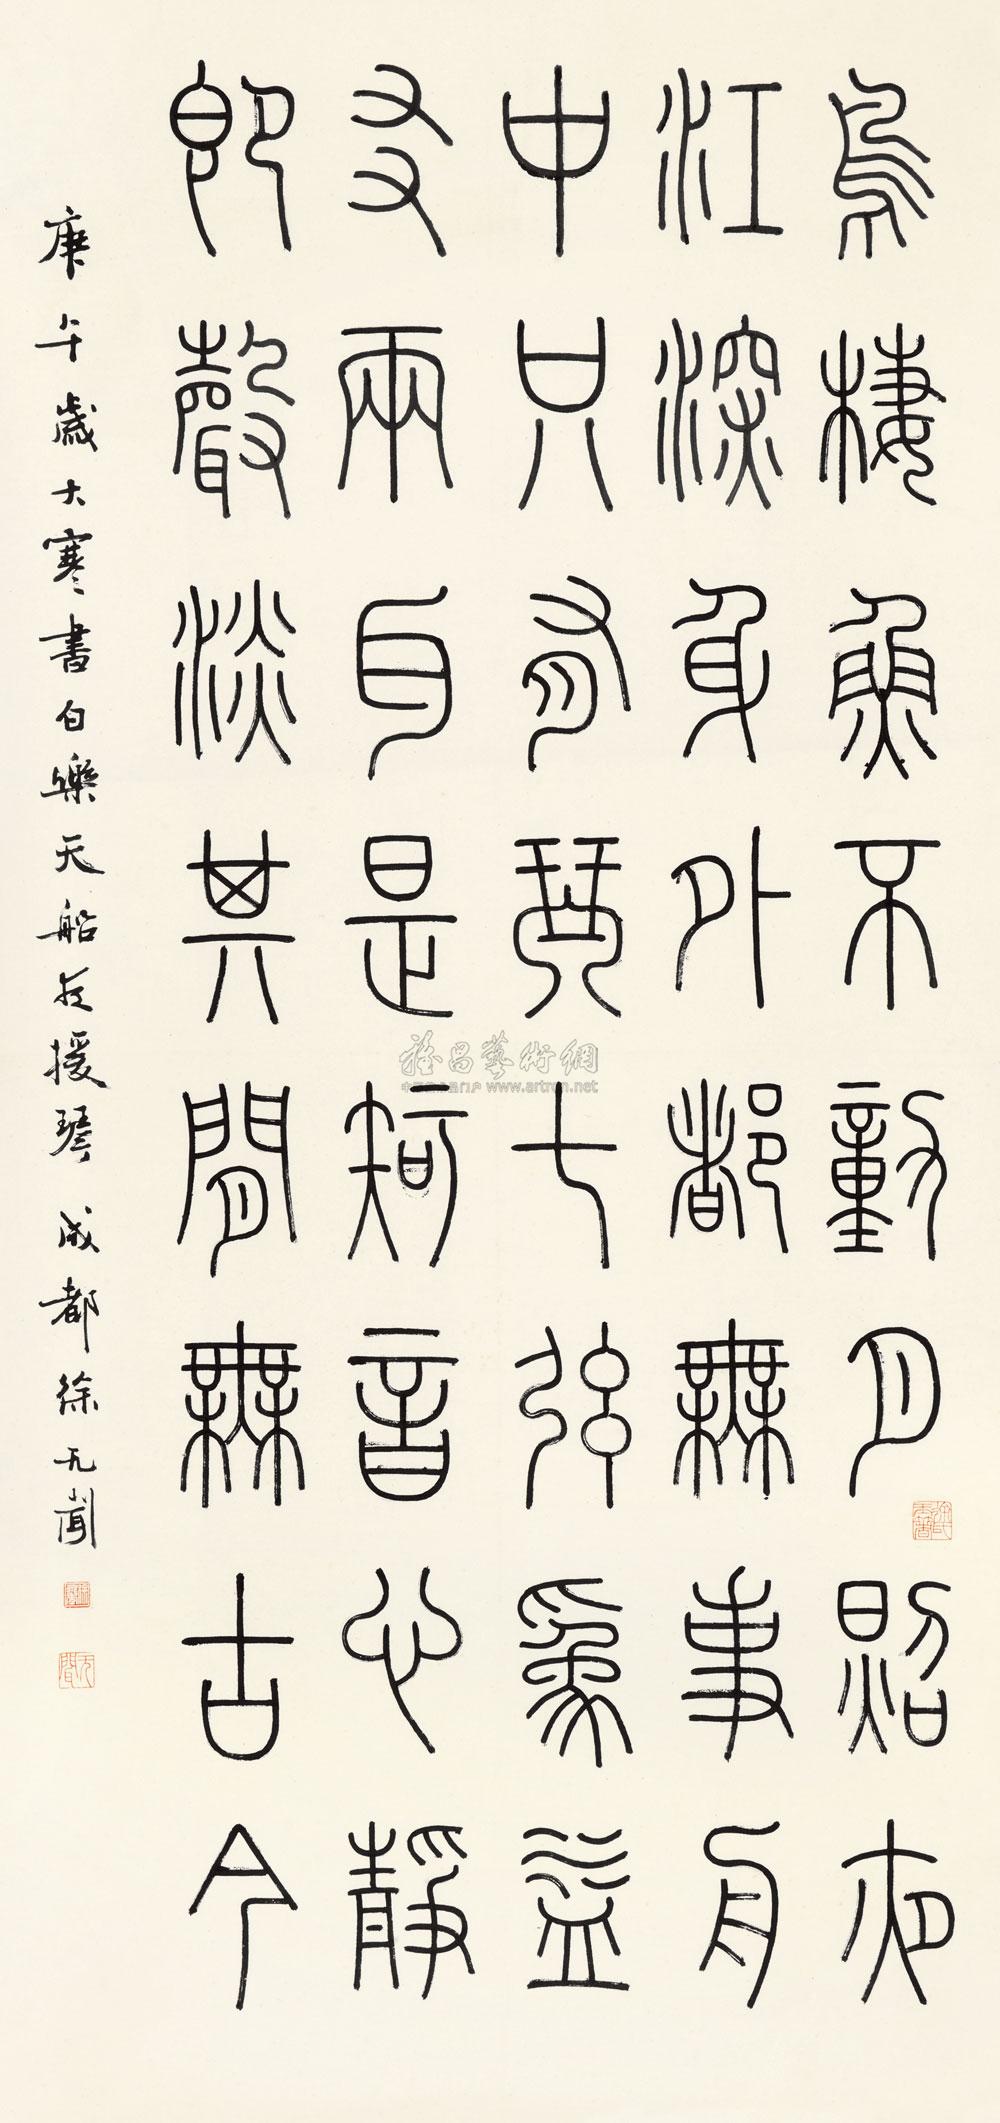 鳥棲魚不動月照夜
江深身外都無事舟
中只有琴七弦爲益
友兩耳是知音心靜
即聲淡其間無古今
庚午歲大寒書白樂天船夜援琴 成都徐无聞
无聞
雅昌藝術網
www.artron.net